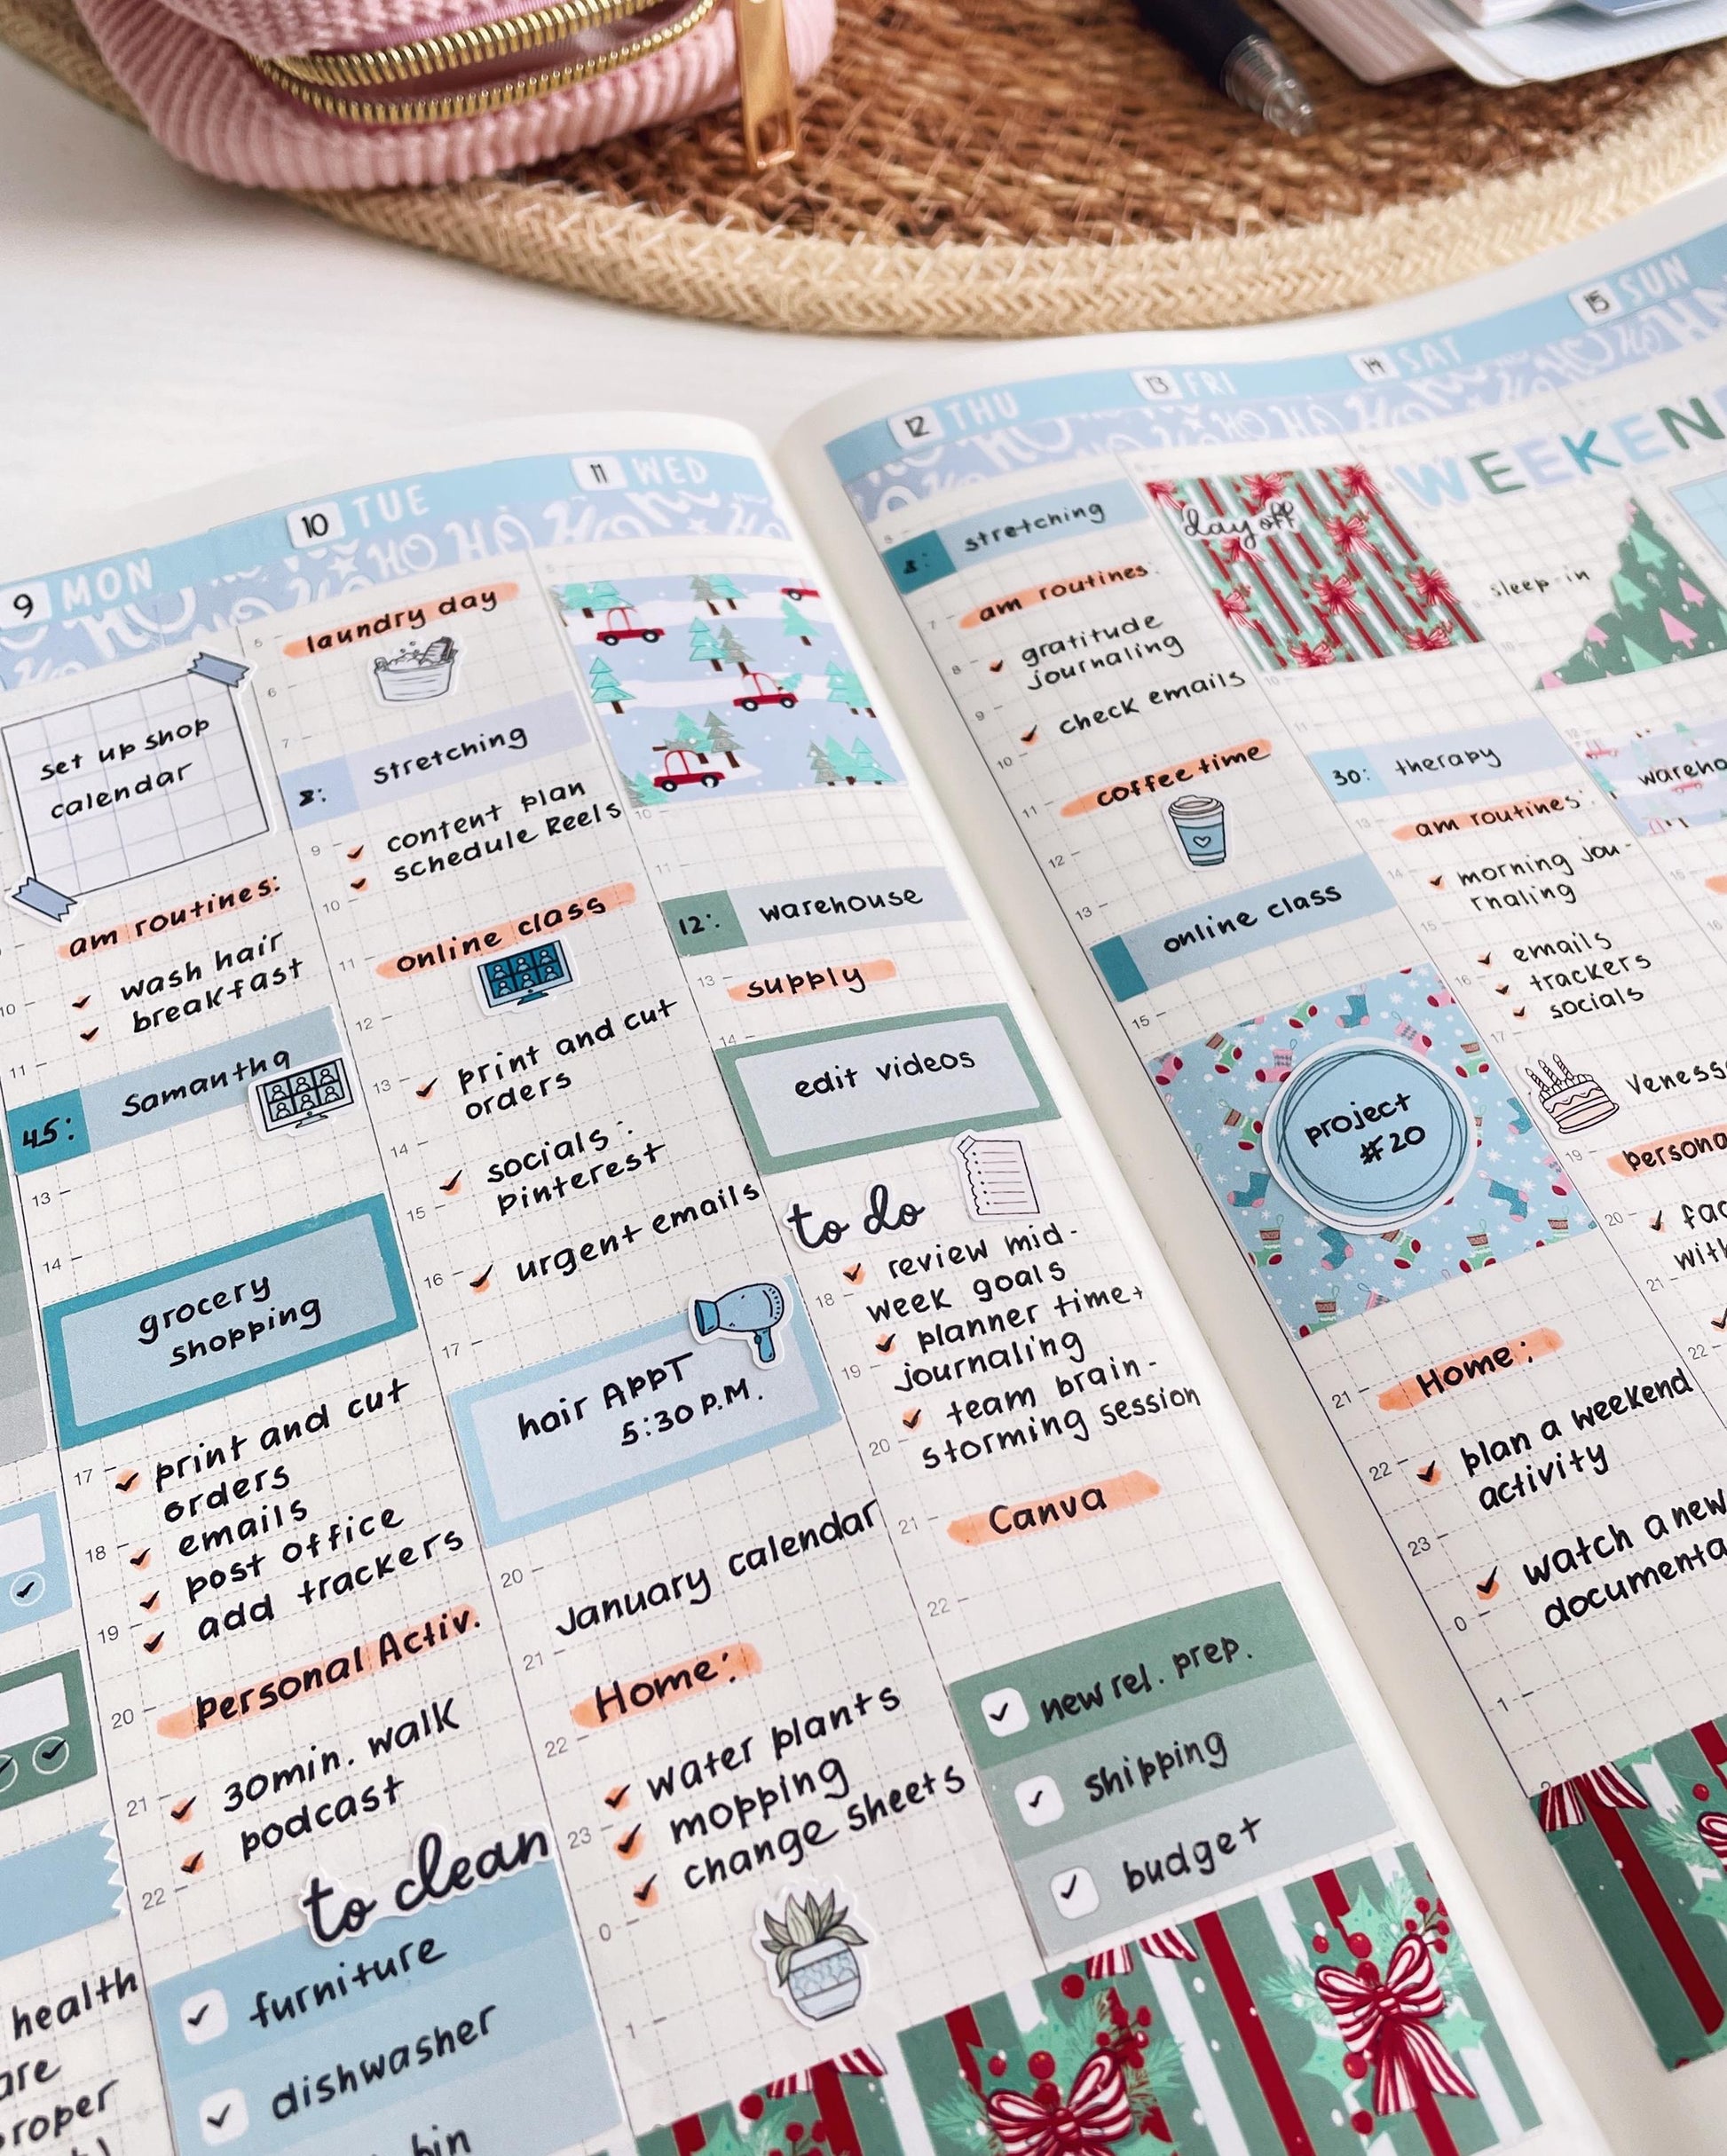 9 MON
set up shop
calendar
am routines:
wash hair
breakfast
45: Samantha
grocery
shopping
print and cut
orders
emails
post office
add trackers
Personal Activ.
30min. walk
podcast
to clean
furniture
dishwasher
bin
health
10 TUE
laundry day
8: stretching
content plan
schedule Reels
online class
print and cut
orders
socials:
pinterest
urgent emails
hair APPT
5:30 P.M.
January calendar
Home:
water plants
mopping
change sheets
11 WED
12: warehouse
supply
edit videos
to do
review mid-
week goals
planner time+
journaling
team brain-
storming session
Canva
new rel. prep.
shipping
budget
12 THU
8: stretching
am routines:
gratitude
journaling
check emails
coffee time
online class
project
#20
Home:
plan a weekend
activity
watch a new
13 FRI
day off
30: therapy
am routines:
morning jou-
rnaling
emails
trackers
socials
14 SAT
15 SUN
WEEKEN
sleep-in